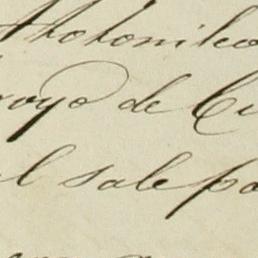 Atotonilco
royo de Cu
el sale pa